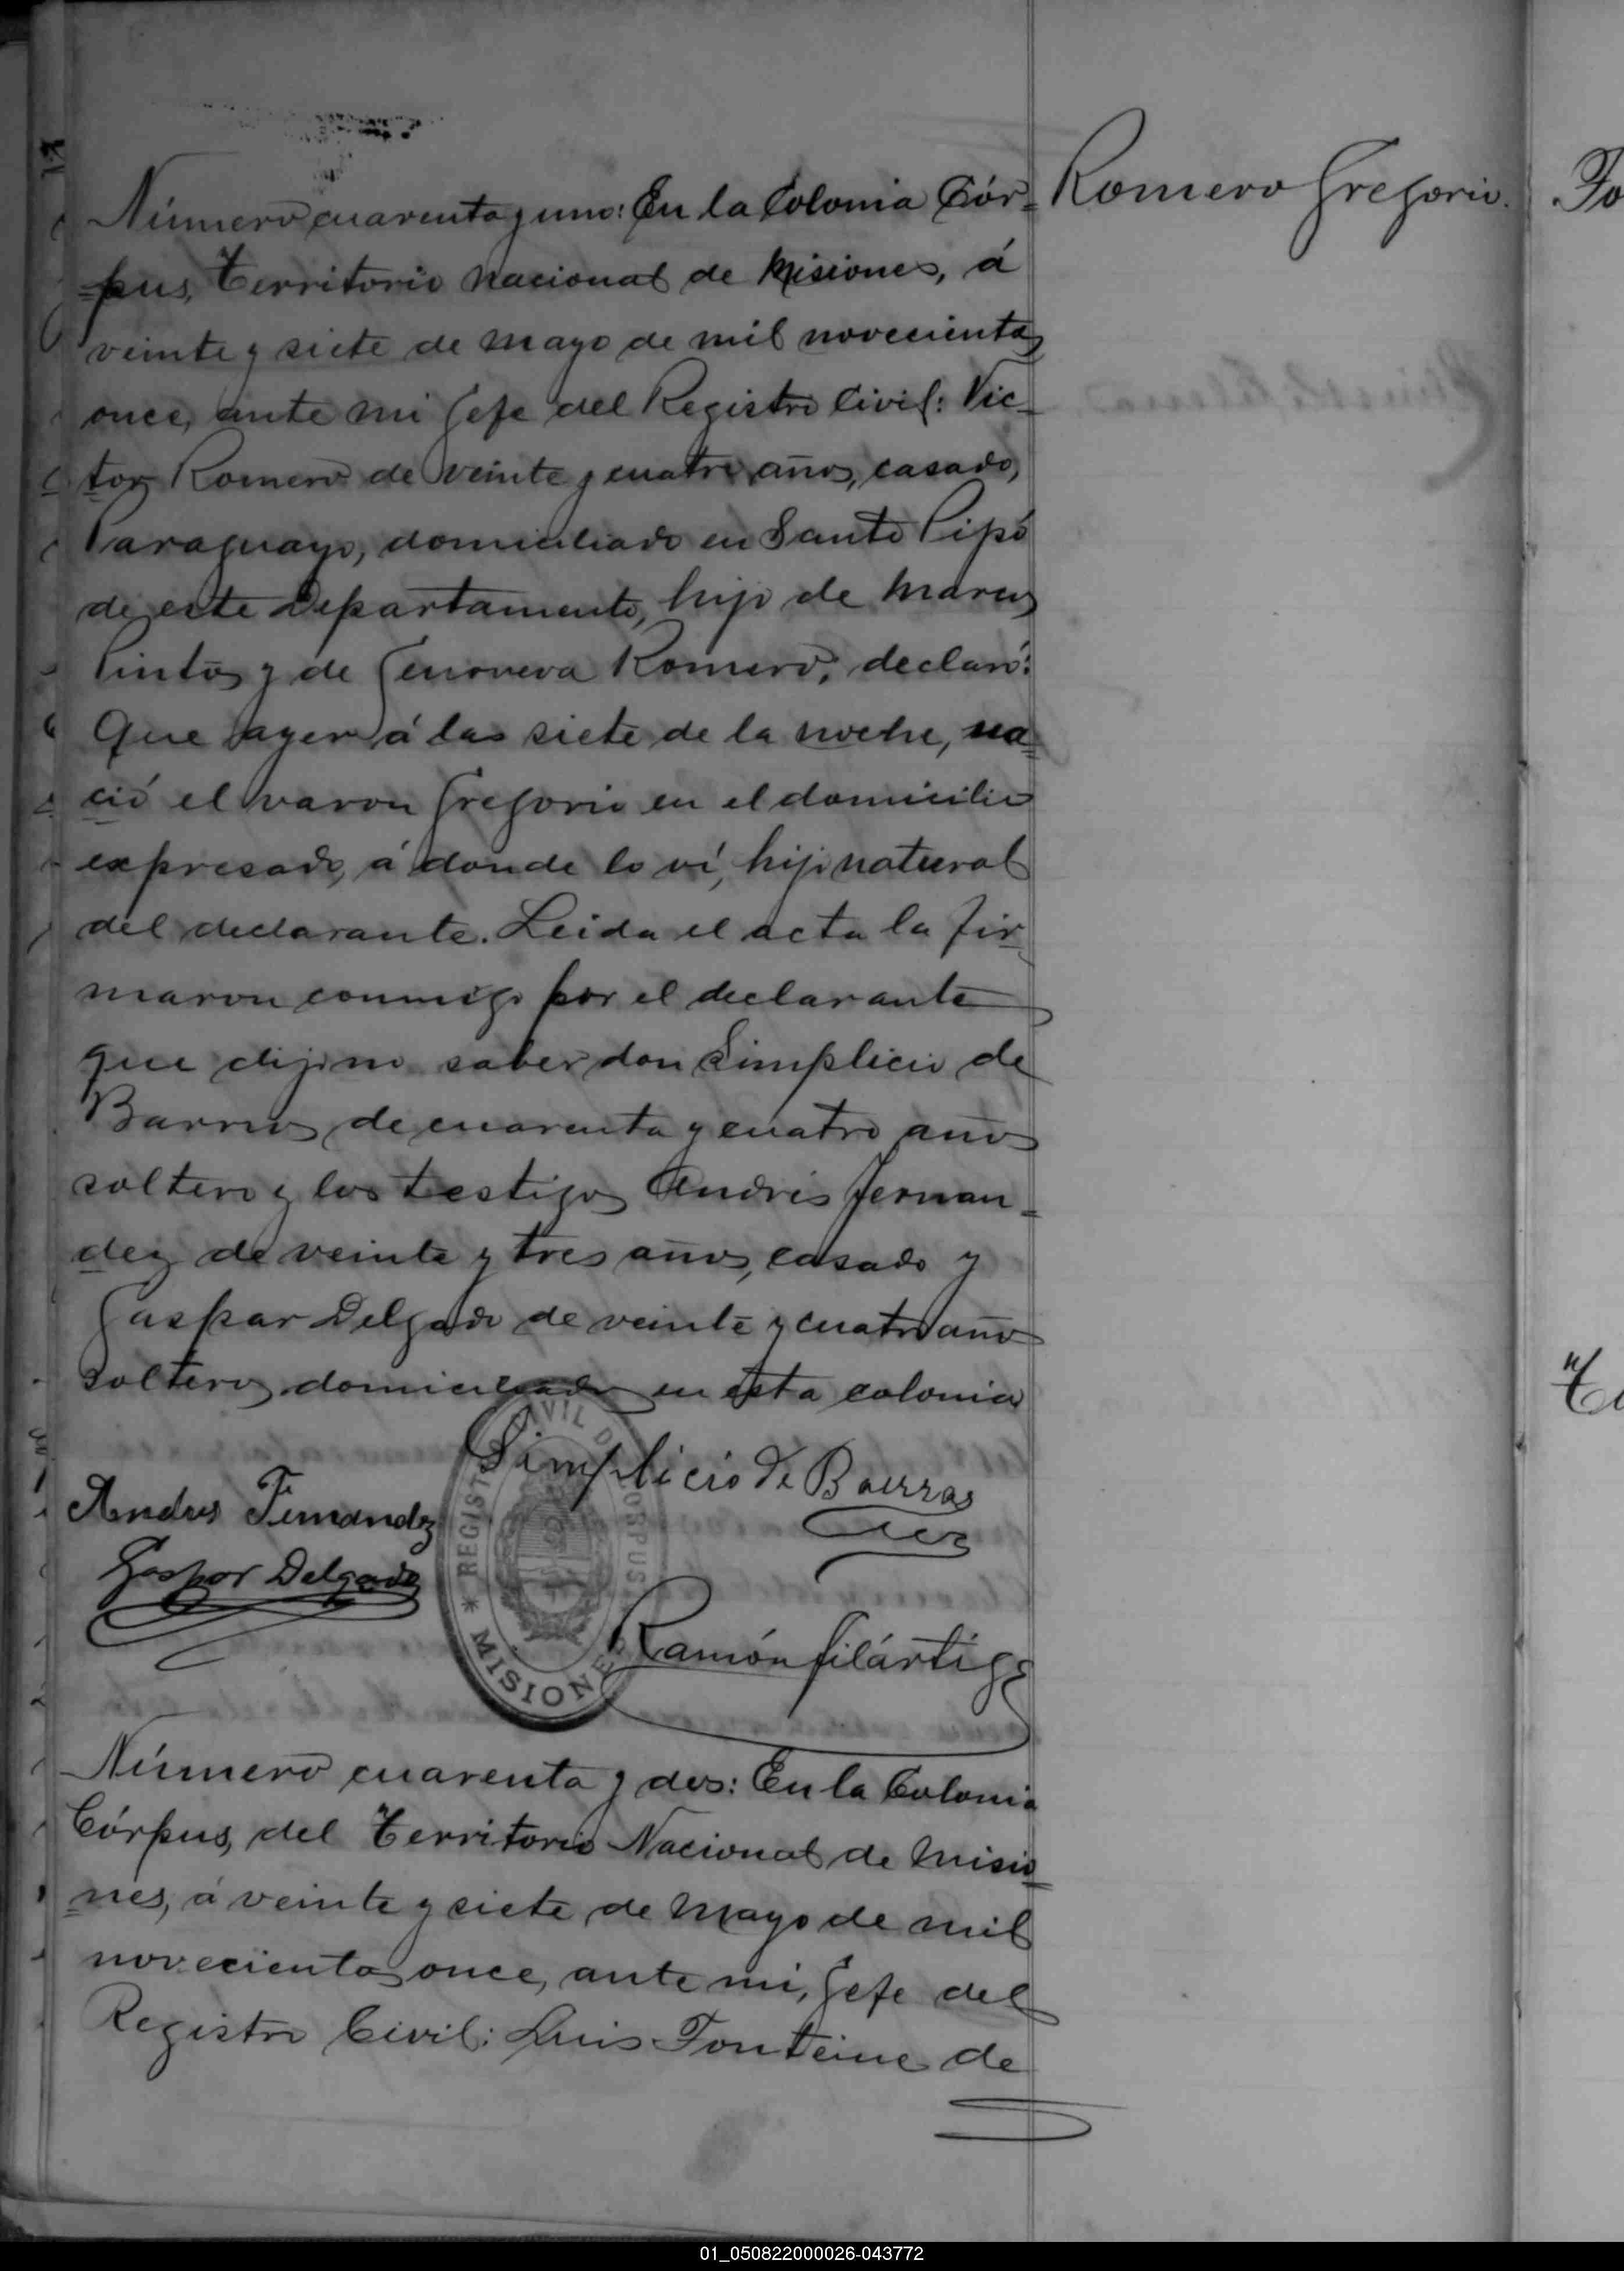 Número cuarenta y uno: En la Colonia Cór=
=pus, Territorio Nacional de Misiones, á
veinte y siete de Mayo de mil novecientos
once, ante mi Jefe del Registro Civil: Vic-
tor Romero de veinte y cuatro años, casado,
Paraguayo, domiciliado en Santo Pipó
de este Departamento, hijo de Marcos
Pintos y de Genoveva Romero, declaró:
Que ayer á las siete de la noche, na=
ció el varon Gregorio en el domicilio
expresado, á donde lo ví, hijo natural
del declarante. Leida el acta la fir-
maron conmigo por el declarante
que dijo no saber don Simplicio de
Barros de cuarenta y cuatro años
soltero y los testigos Andrés Fernan=
dez de veinte y tres años, casado y
Gaspar Delgado de veinte y cuatro años
soltero, domiciliados en esta colonia
Simplicio de Barros
Andres Fernandez
Gaspar Delgado
REGISTRO CIVIL DE CORPUS
* MISIONES
Ramón Filártiga
Número cuarenta y dos: En la Colonia
Córpus, del Territorio Nacional de Misio=
nes, á veinte y siete de Mayo de mil
novecientos once, ante mi, Jefe del
Registro Civil: Luis Fonteine de
Romero Gregorio.
Fo
01_050822000026-043772